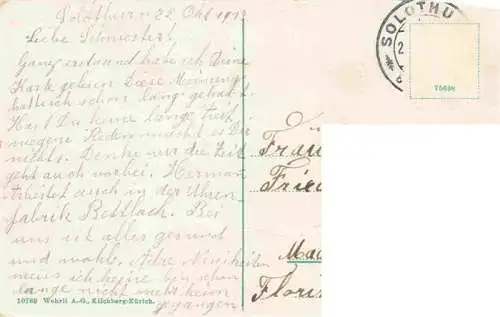 Solothurn 22 Okt 1913
Liebe Schwester!
Ganz erstaunt habe ich Deine
Karte gelesen Diese Meinung
hatte ich schon lang gehabt.
Hast Du keine lange Zeit,
wegene Reden macht es Dir
nichts. Denke nur die Zeit
geht auch vorbei. Herman
Arbeitet auch in der Uhren-
fabrik Bettlach. Bei
uns ist alles gesund
und wohl. Adre Neuikeiten
weiss ich keine bin schon
lange nicht mehr heim
gegangen
10769 Wehrli A.-G., Kilchberg-Zürich.
SOLOTHU
2
Frau
Frie
Mad
Flori